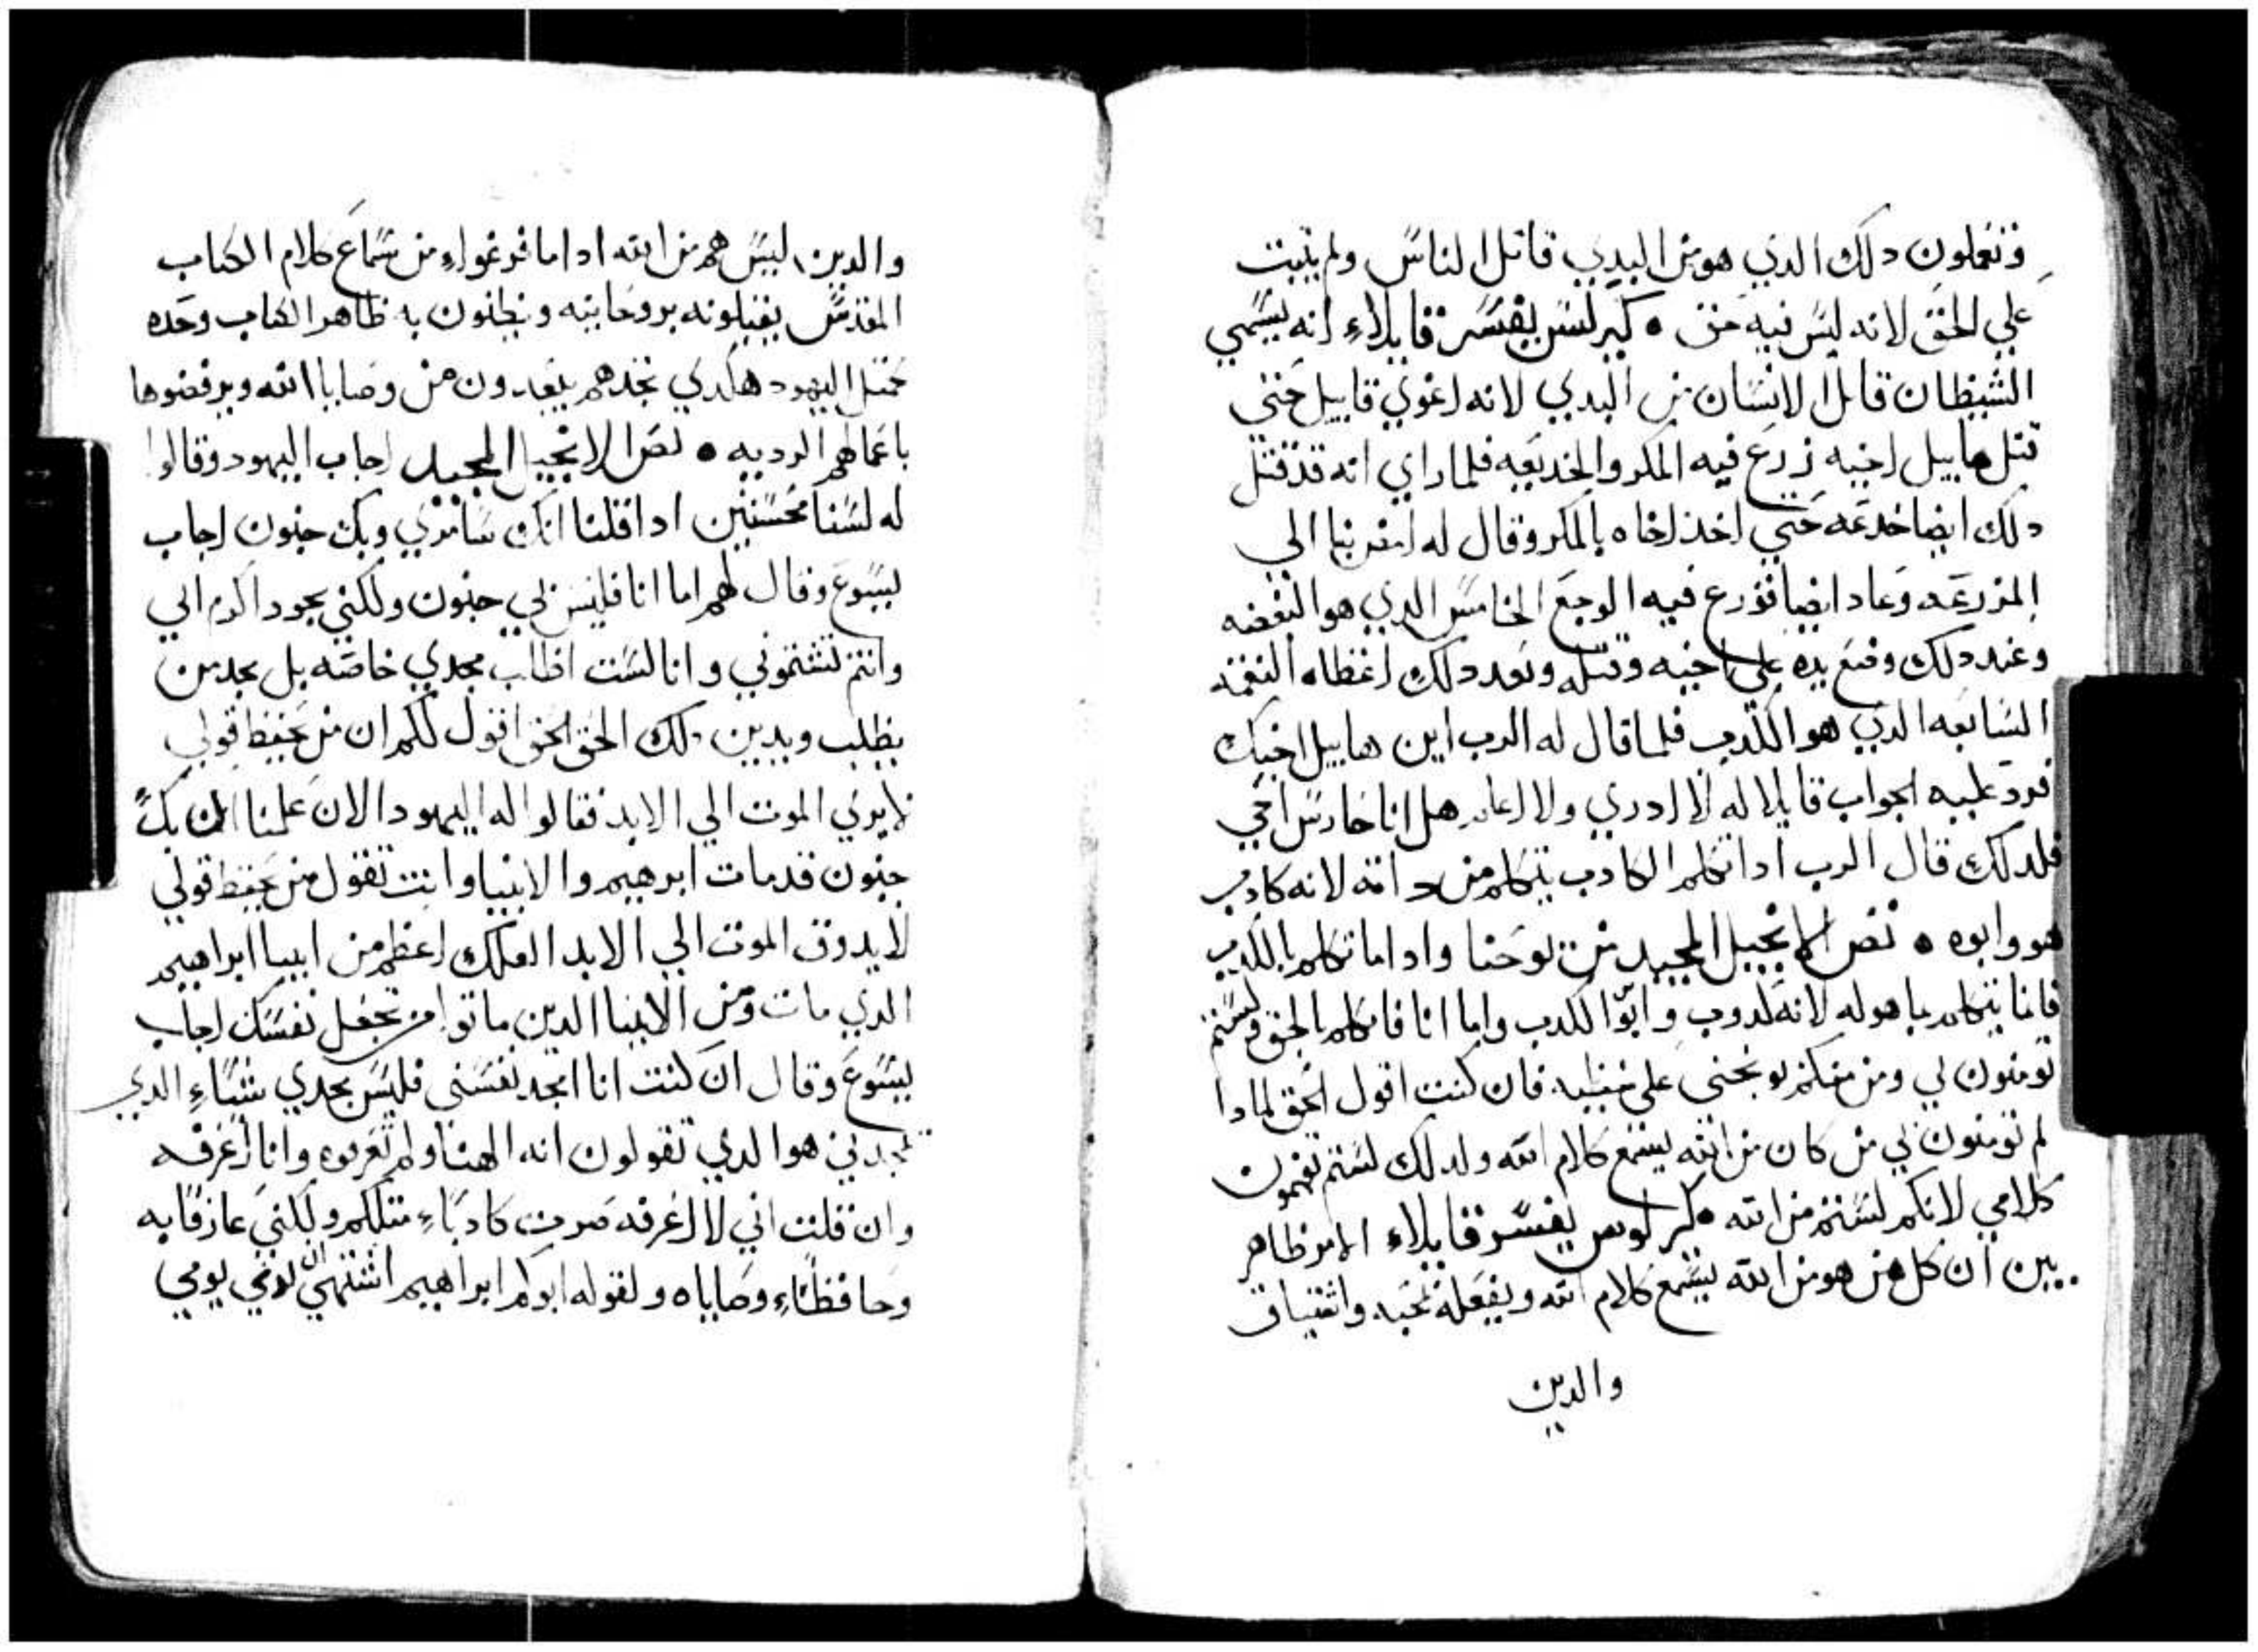 وتعملون دلك الدي هو من البدي قاتل الناس ولم يتبت
علي الحق لانه ليس فيه حق • كيرلس يفسر قايلاء انه يسمي
الشيطان قاتل الانسان من البدي لانه اغوي قاييل حتي
قتل هابيل اخيه زرع فيه المكر والخديعه فلما راي انه قد قتل
دلك ايضا خدعه حتي اخذ اخاه بالمكر وقال له امض بنا الي
المزرعه وعاد ايضا فزرع فيه الوجع الخامس الدي هو البغضه
وعند دلك وضع يده علي اخيه وقتله وبعد دلك اعطاه النقمه
السابعه الدي هو الكدب فلما قال له الرب اين هابيل اخيك
فرد عليه الجواب قايلا له لا ادري ولا اعلم هل انا حارس اخي
فلدلك قال الرب ادا تكلم الكادب يتكلم من داته لانه كادب
هو وابوه • نص الانجيل المجيد من يوحنا وادا ما تكلم بالكدب
فانما يتكلم بما هو له لانه كدوب وابو الكدب واما انا فاتكلم بالحق ولستم
تومنون لي ومن منكم يوبخني علي خطيه فان كنت اقول الحق لمادا
لم تومنون لي من كان من الله يسمع كلام الله ولدلك لستم تفهمون
كلامي لانكم لستم من الله • كيرلوس يفسر قايلاء الامر ظاهر
بين ان كل من هو من الله يسمع كلام الله ويفعله بمحبه واشتياق
والدين
والدين ليس هم من الله ادا ما فرغواء من سماع كلام الكتاب
المقدس يقبلونه بروحانيه ويظنون به ظاهر الكتاب وحده
كمتل اليهود هكدي نجدهم يبعدون من وصايا الله ويرفضوها
باعمالهم الرديه • نص الانجيل المجيد اجاب اليهود وقالوا
له لسنا محسنين ادا قلنا انك سامري وبك جنون اجاب
يسوع وقال لهم اما انا فليس بي جنون ولكني اكرم ابي
وانتم تشتموني وانا لست اطلب مجدي خاصه بل يجد من
يطلب ويدين دلك الحق الحق اقول لكم ان من يحفظ قولي
لا يري الموت الي الابد فقالوا له اليهود الان علمنا ان بك
جنون قد مات ابرهيم والانبيا وانت تقول من يحفظ قولي
لا يدوق الموت الي الابد العلك اعظم من ابينا ابراهيم
الدي مات ومن الانبيا الدين ماتوا من تجعل نفسك اجاب
يسوع وقال ان كنت انا امجد نفسي فليس مجدي شيٱء الدي
يمجدني هو الدي تقولون انه الهنا ولم تعرفوه وانا اعرفه
وان قلت اني لا اعرفه صرت كادباء متلكم ولكني عارفا به
وحافظاء وصاياه ولقوله ابوكم ابراهيم اشتهي ان يري يومي